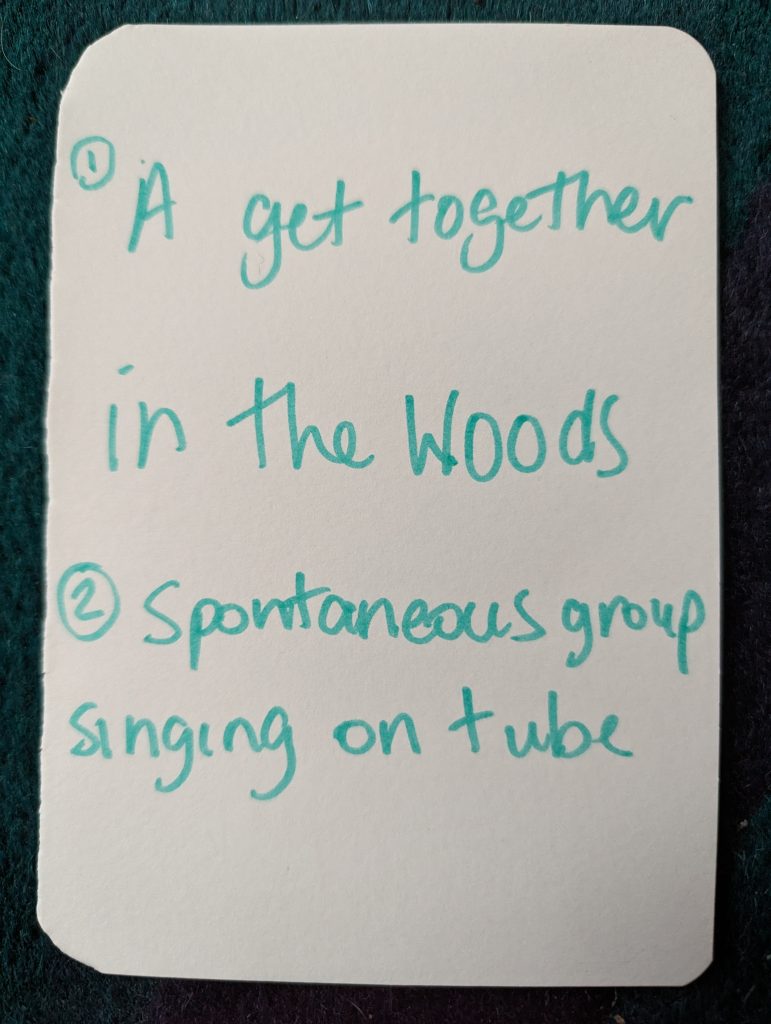 ① A get together
in the Woods
② Spontaneous group
singing on tube